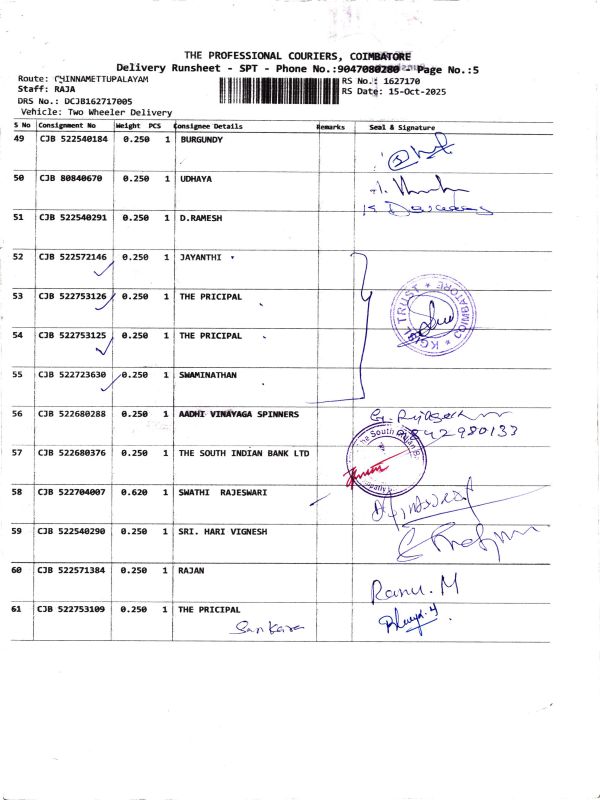 THE PROFESSIONAL COURIERS, COIMBATORE
Delivery Runsheet - SPT - Phone No.:9047080280 - Page No.:5
Route: CHINNAMETTUPALAYAM RS No.: 1627170
Staff: RAJA RS Date: 15-Oct-2025
DRS No.: DCJB162717005
Vehicle: Two Wheeler Delivery
S No Consignment No Weight PCS Consignee Details Remarks Seal & Signature
49 CJB 522540184 0.250 1 BURGUNDY
50 CJB 80840670 0.250 1 UDHAYA
51 CJB 522540291 0.250 1 D.RAMESH
52 CJB 522572146 0.250 1 JAYANTHI
53 CJB 522753126 0.250 1 THE PRICIPAL
54 CJB 522753125 0.250 1 THE PRICIPAL
KGISL TRUST * COIMBATORE *
55 CJB 522723630 0.250 1 SWAMINATHAN
56 CJB 522680288 0.250 1 AADHI VINAYAGA SPINNERS
9842980133
The South Indian B
57 CJB 522680376 0.250 1 THE SOUTH INDIAN BANK LTD
58 CJB 522704007 0.620 1 SWATHI RAJESWARI
59 CJB 522540290 0.250 1 SRI. HARI VIGNESH
60 CJB 522571384 0.250 1 RAJAN
Ranu. M
61 CJB 522753109 0.250 1 THE PRICIPAL
Sankara